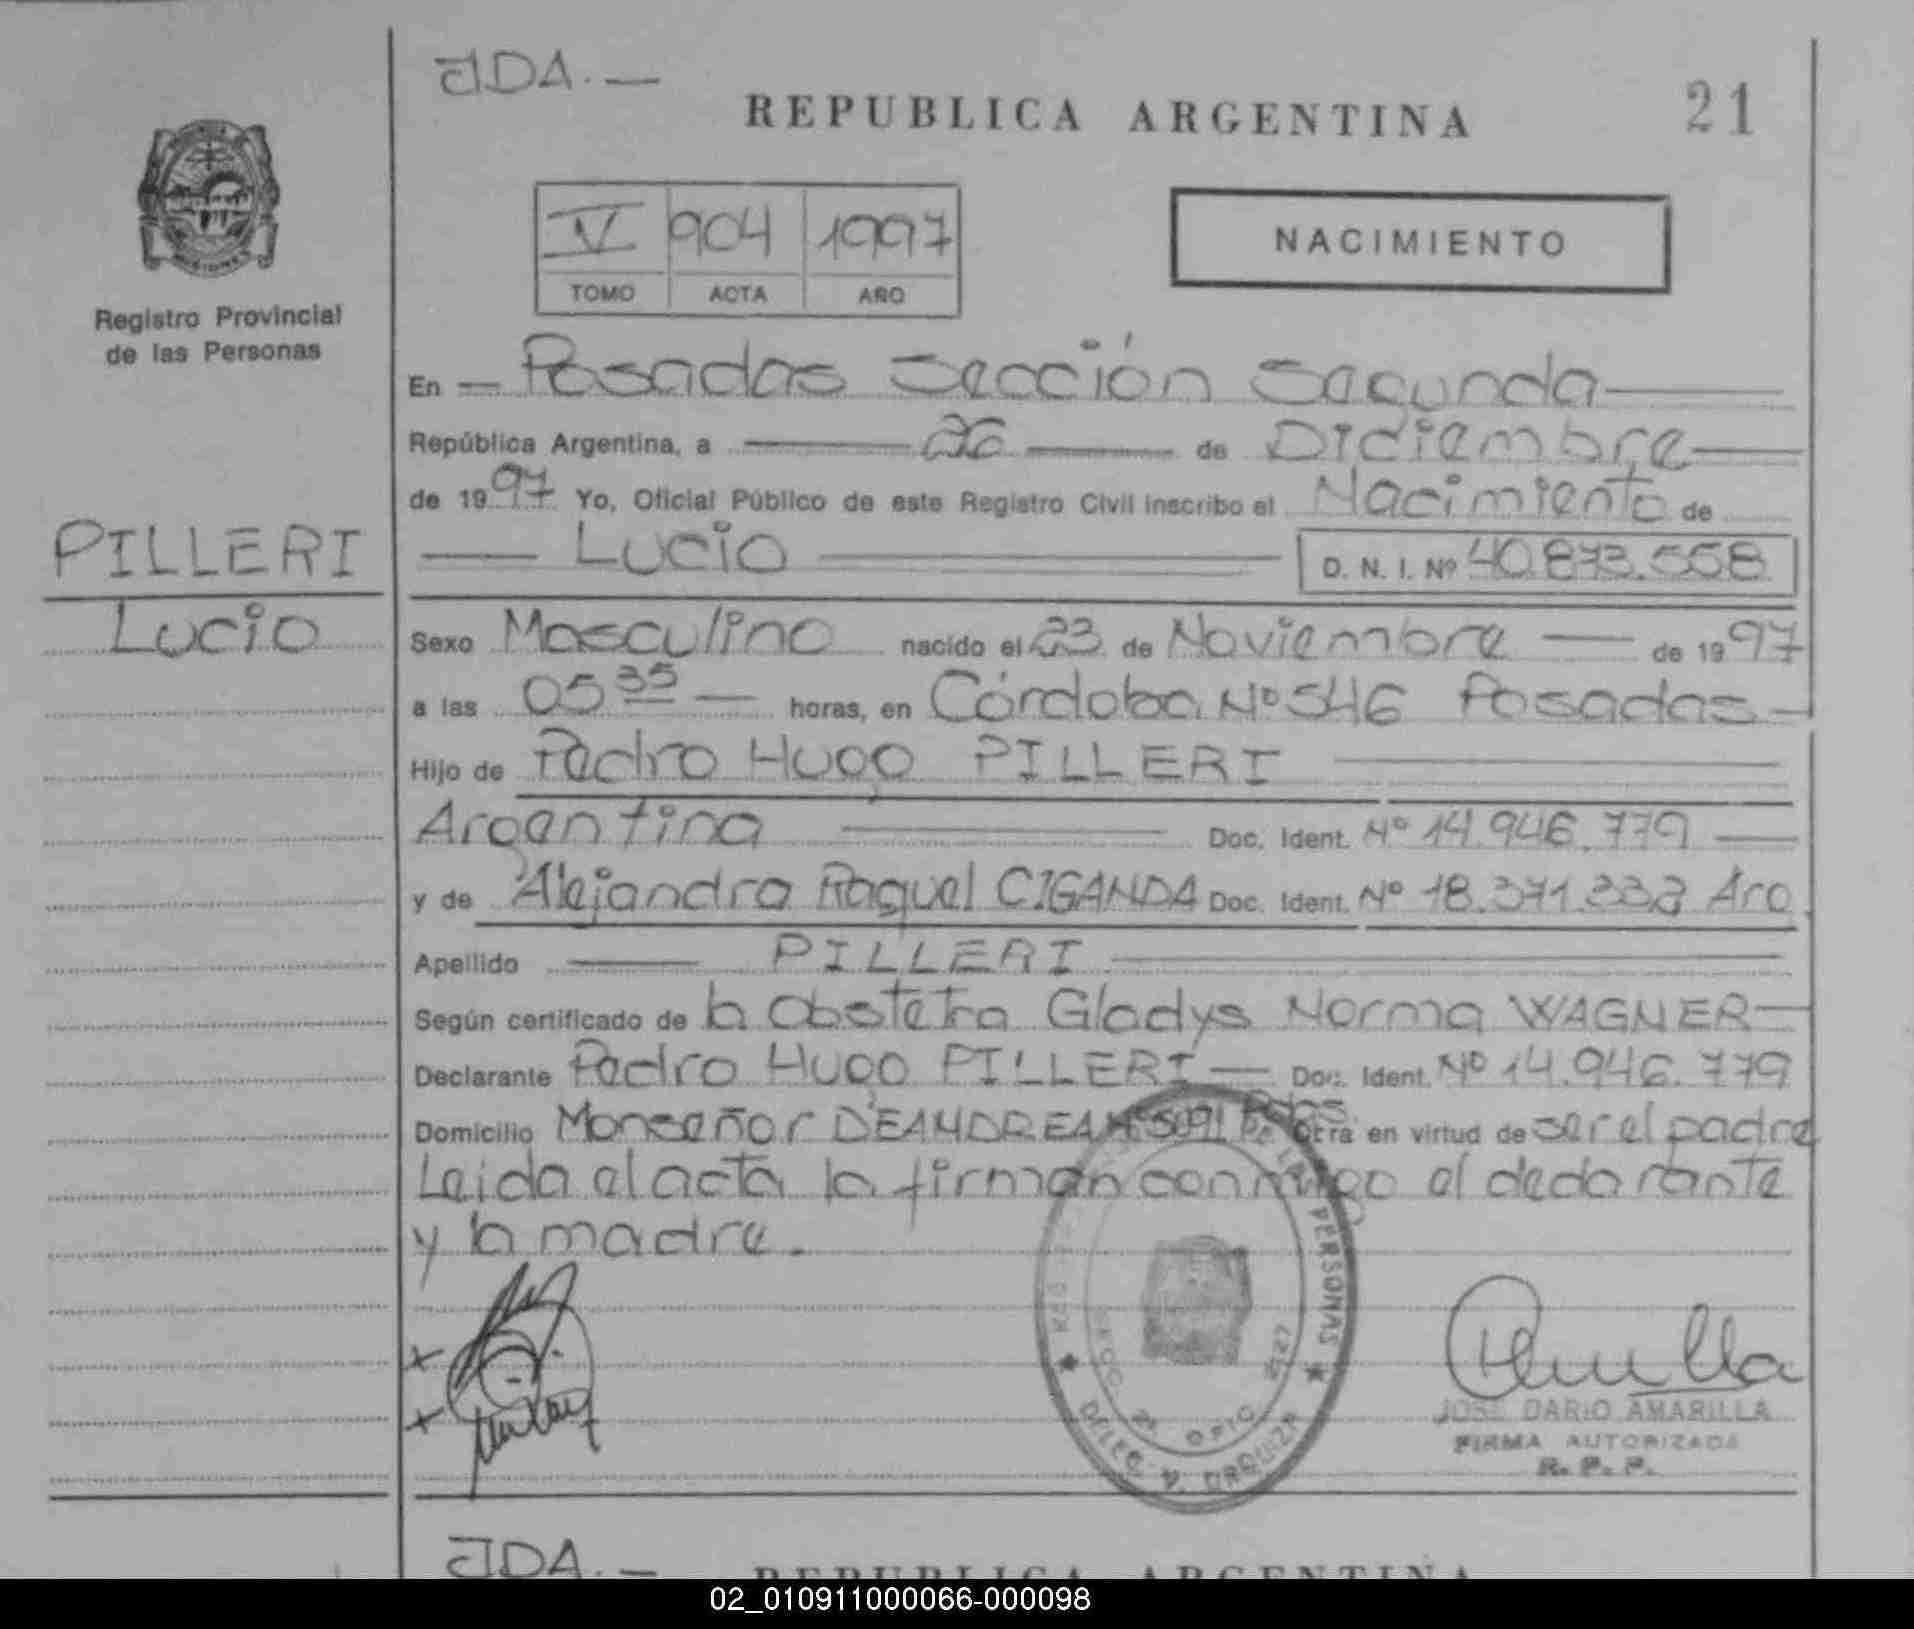 JDA.—
REPUBLICA ARGENTINA
21
V 904 1997
TOMO ACTA AÑO
NACIMIENTO
Registro Provincial
de las Personas
PILLERI
Lucio
En — Posadas Sección Segunda
República Argentina, a 26 de Diciembre
de 1997 Yo, Oficial Público de este Registro Civil inscribo el Nacimiento de
Lucio D. N. I. Nº 40.873.558
Sexo Masculino nacido el 23 de Noviembre — de 1997
a las 05 35 — horas, en Córdoba Nº 546 Posadas -
Hijo de Pedro Hugo PILLERI
Argentina Doc. Ident. Nº 14.946.779 —
y de Alejandra Raquel CIGANDA Doc. Ident. Nº 18.371.332 Arg.
Apellido — PILLERI
Según certificado de la Obstetra Gladys Norma WAGNER —
Declarante Pedro Hugo PILLERI — Doc. Ident. Nº 14.946.779
Domicilio Monseñor D'EANDREA Nº 5091 Pdas. Obra en virtud de ser el padre
Leida el acta la firman conmigo el declarante
y la madre.
PERSONAS
JOSE DARIO AMARILLA
FIRMA AUTORIZADA
R. P. P.
JDA.—
REPUBLICA ARGENTINA
02_010911000066-000098